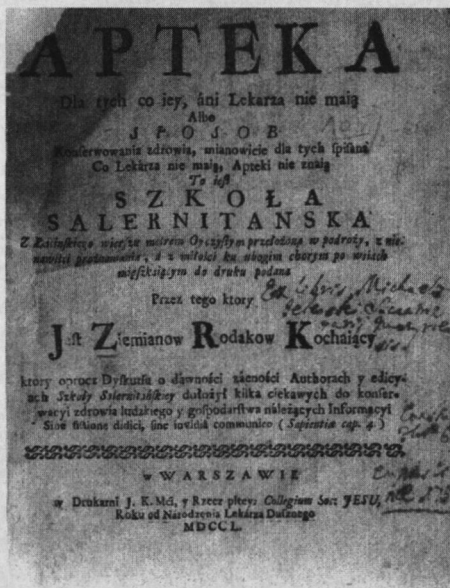 APTEKA
Dla tych co iey, áni Lekarza nie maią
Albo
SPOSOB
Konserwowania zdrowia, mianowicie dla tych spisana
Co Lekárza nie maią, Apteki nie znáią
To iest
SZKOŁA
SALERNITANSKA
Z Łácińskiego wierszu miárom Oyczystym przełożona w podroży, z nie-
nawiści prożnowánia, á z miłości ku ubogim chorym po wsiách
mięszkáiącym do druku podana
Przez tego ktory
Jest Ziemianow Rodakow Kochaiący
ktory oprocz Dyskursu o dawności zácności Authorach y edicy-
ach Szkoły Salernitáńskiey dołożył kilka ciekawych do konser-
wacyi zdrowia ludzkiego y gospodarstwa náleżących Informacyi
Sine fictione didici, sine invidiâ communico (Sapientiæ cap. 4)
w WARSZAWIE
w Drukarni J. K. Mći, y Rzeczpltey: Collegium Soc: JESU,
Roku od Národzenia Lekárza Dusznego
MDCCL.
Ex libris Michaelis